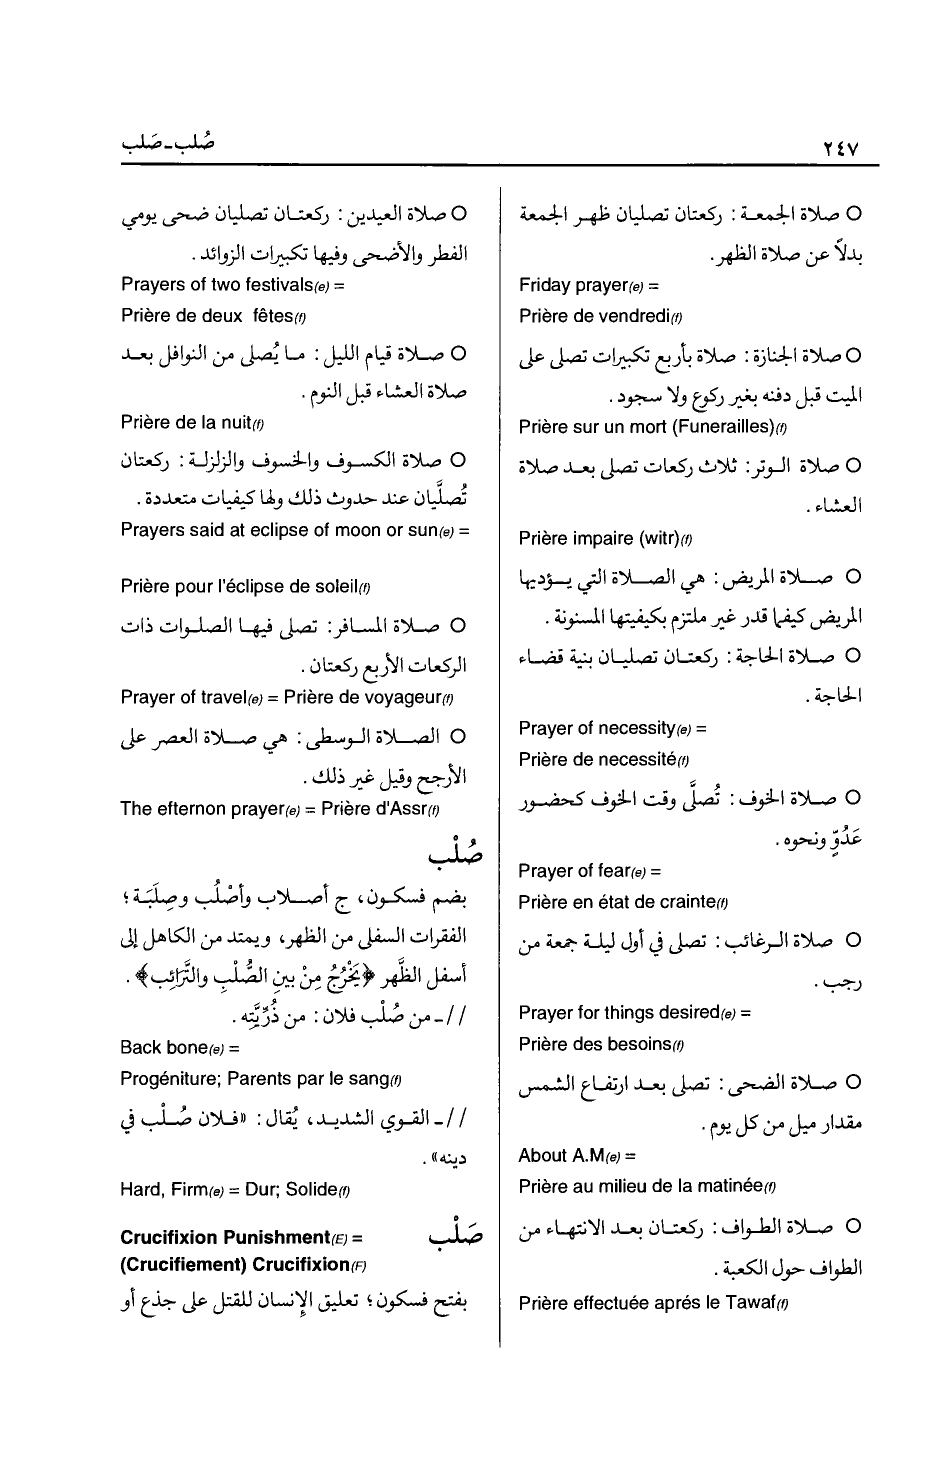 ٢٤٧
صُلب ـ صَلب
O صلاة الجمعـة : ركعتان تصليان ظهر الجمعة
بدلاً عن صلاة الظهر.
Friday prayer(e) =
Prière de vendredi(f)
O صلاة الجنازة : صلاة بأربع تكبيرات تصلى على
الميت قبل دفنه بغير ركوع ولا سجود .
Prière sur un mort (Funerailles)(f)
O صلاة الوتر : ثلاث ركعات تصلى بعد صلاة
العشاء .
Prière impaire (witr)(f)
O صلاة المريض : هي الصلاة التي يؤديها
المريض كيفما قدر غير ملتزم بكيفيتها المسنونة .
O صلاة الحاجة : ركعتان تصليان بنية قضاء
الحاجة .
Prayer of necessity(e) =
Prière de necessité(f)
O صلاة الخوف : تُصلَّى وقت الخوف كحضور
عَدُوٍّ ونحوه .
Prayer of fear(e) =
Prière en état de crainte(f)
O صلاة الرغائب : تصلى في أول ليلة جمعة من
رجب .
Prayer for things desired(e) =
Prière des besoins(f)
O صلاة الضحى : تصلى بعد ارتفاع الشمس
مقدار ميل من كل يوم .
About A.M(e) =
Prière au milieu de la matinée(f)
O صلاة الطواف : ركعتان بعد الانتهاء من
الطواف حول الكعبة .
Prière effectuée aprés le Tawaf(f)
O صلاة العيدين : ركعتان تصليان ضحى يومي
الفطر والأضحى وفيها تكبيرات الزوائد .
Prayers of two festivals(e) =
Prière de deux fêtes(f)
O صلاة قيام الليل : ما يُصلى من النوافل بعد
صلاة العشاء قبل النوم .
Prière de la nuit(f)
O صلاة الكسوف والخسوف والزلزلة : ركعتان
تُصلَّيان عند حدوث ذلك ولها كيفيات متعددة .
Prayers said at eclipse of moon or sun(e) =
Prière pour l'éclipse de soleil(f)
O صلاة المسافر: تصلى فيها الصلوات ذات
الركعات الأربع ركعتان .
Prayer of travel(e) = Prière de voyageur(f)
O الصلاة الوسطى : هي صلاة العصر على
الأرجح وقيل غير ذلك .
The efternon prayer(e) = Prière d'Assr(f)
صُلْب
بضم فسكون، ج أصلاب وأصْلُب وصِلَبَة ؛
الفقرات السفلى من الظهر، ويمتد من الكاهل إلى
أسفل الظَّهر ﴿يَخْرُجُ مِنْ بينِ الصُّلْبِ والتَّرَائِب﴾ .
// ـ من صُلْب فلان : من ذُرِّيَّتِه .
Back bone(e) =
Progéniture; Parents par le sang(f)
// ـ القوي الشديد، يُقال : «فلان صُلْب في
دينه» .
Hard, Firm(e) = Dur; Solide(f)
صَلْب
Crucifixion Punishment(E) =
(Crucifiement) Crucifixion(F)
بفتح فسكون ؛ تعليق الإنسان للقتل على جذع أو